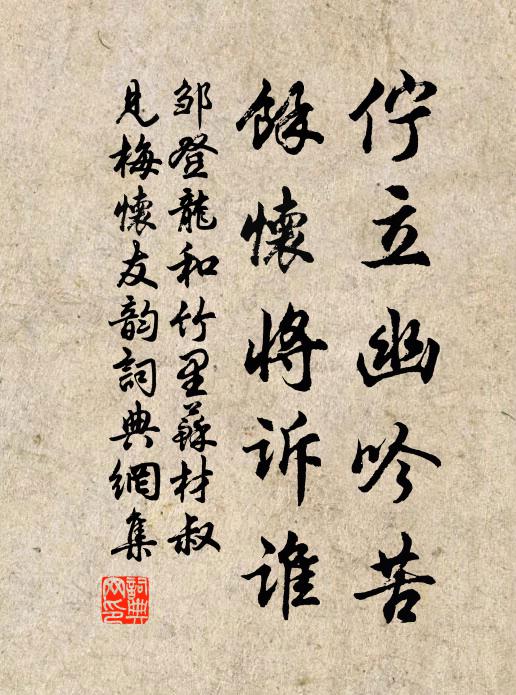 佇立幽吟苦
餘懷將訴誰
邹登龍和竹里蘇材叔
見梅懷友韵詞典網集
詞典網印